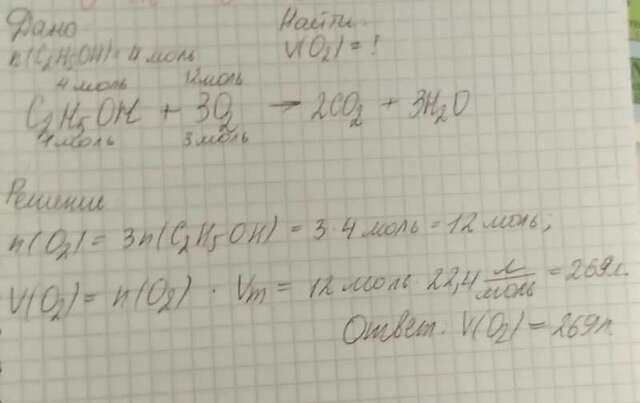 Дано
Найти
n(C₂H₅OH) = 4 моль
V(O₂) = !
4 моль 12 моль
C₂H₅OH + 3O₂ → 2CO₂ + 3H₂O
1 моль 3 моль
Решение
n(O₂) = 3n(C₂H₅OH) = 3·4 моль = 12 моль;
V(O₂) = n(O₂) · Vm = 12 моль 22,4 л/моль = 269 л.
Ответ. V(O₂) = 269 л.